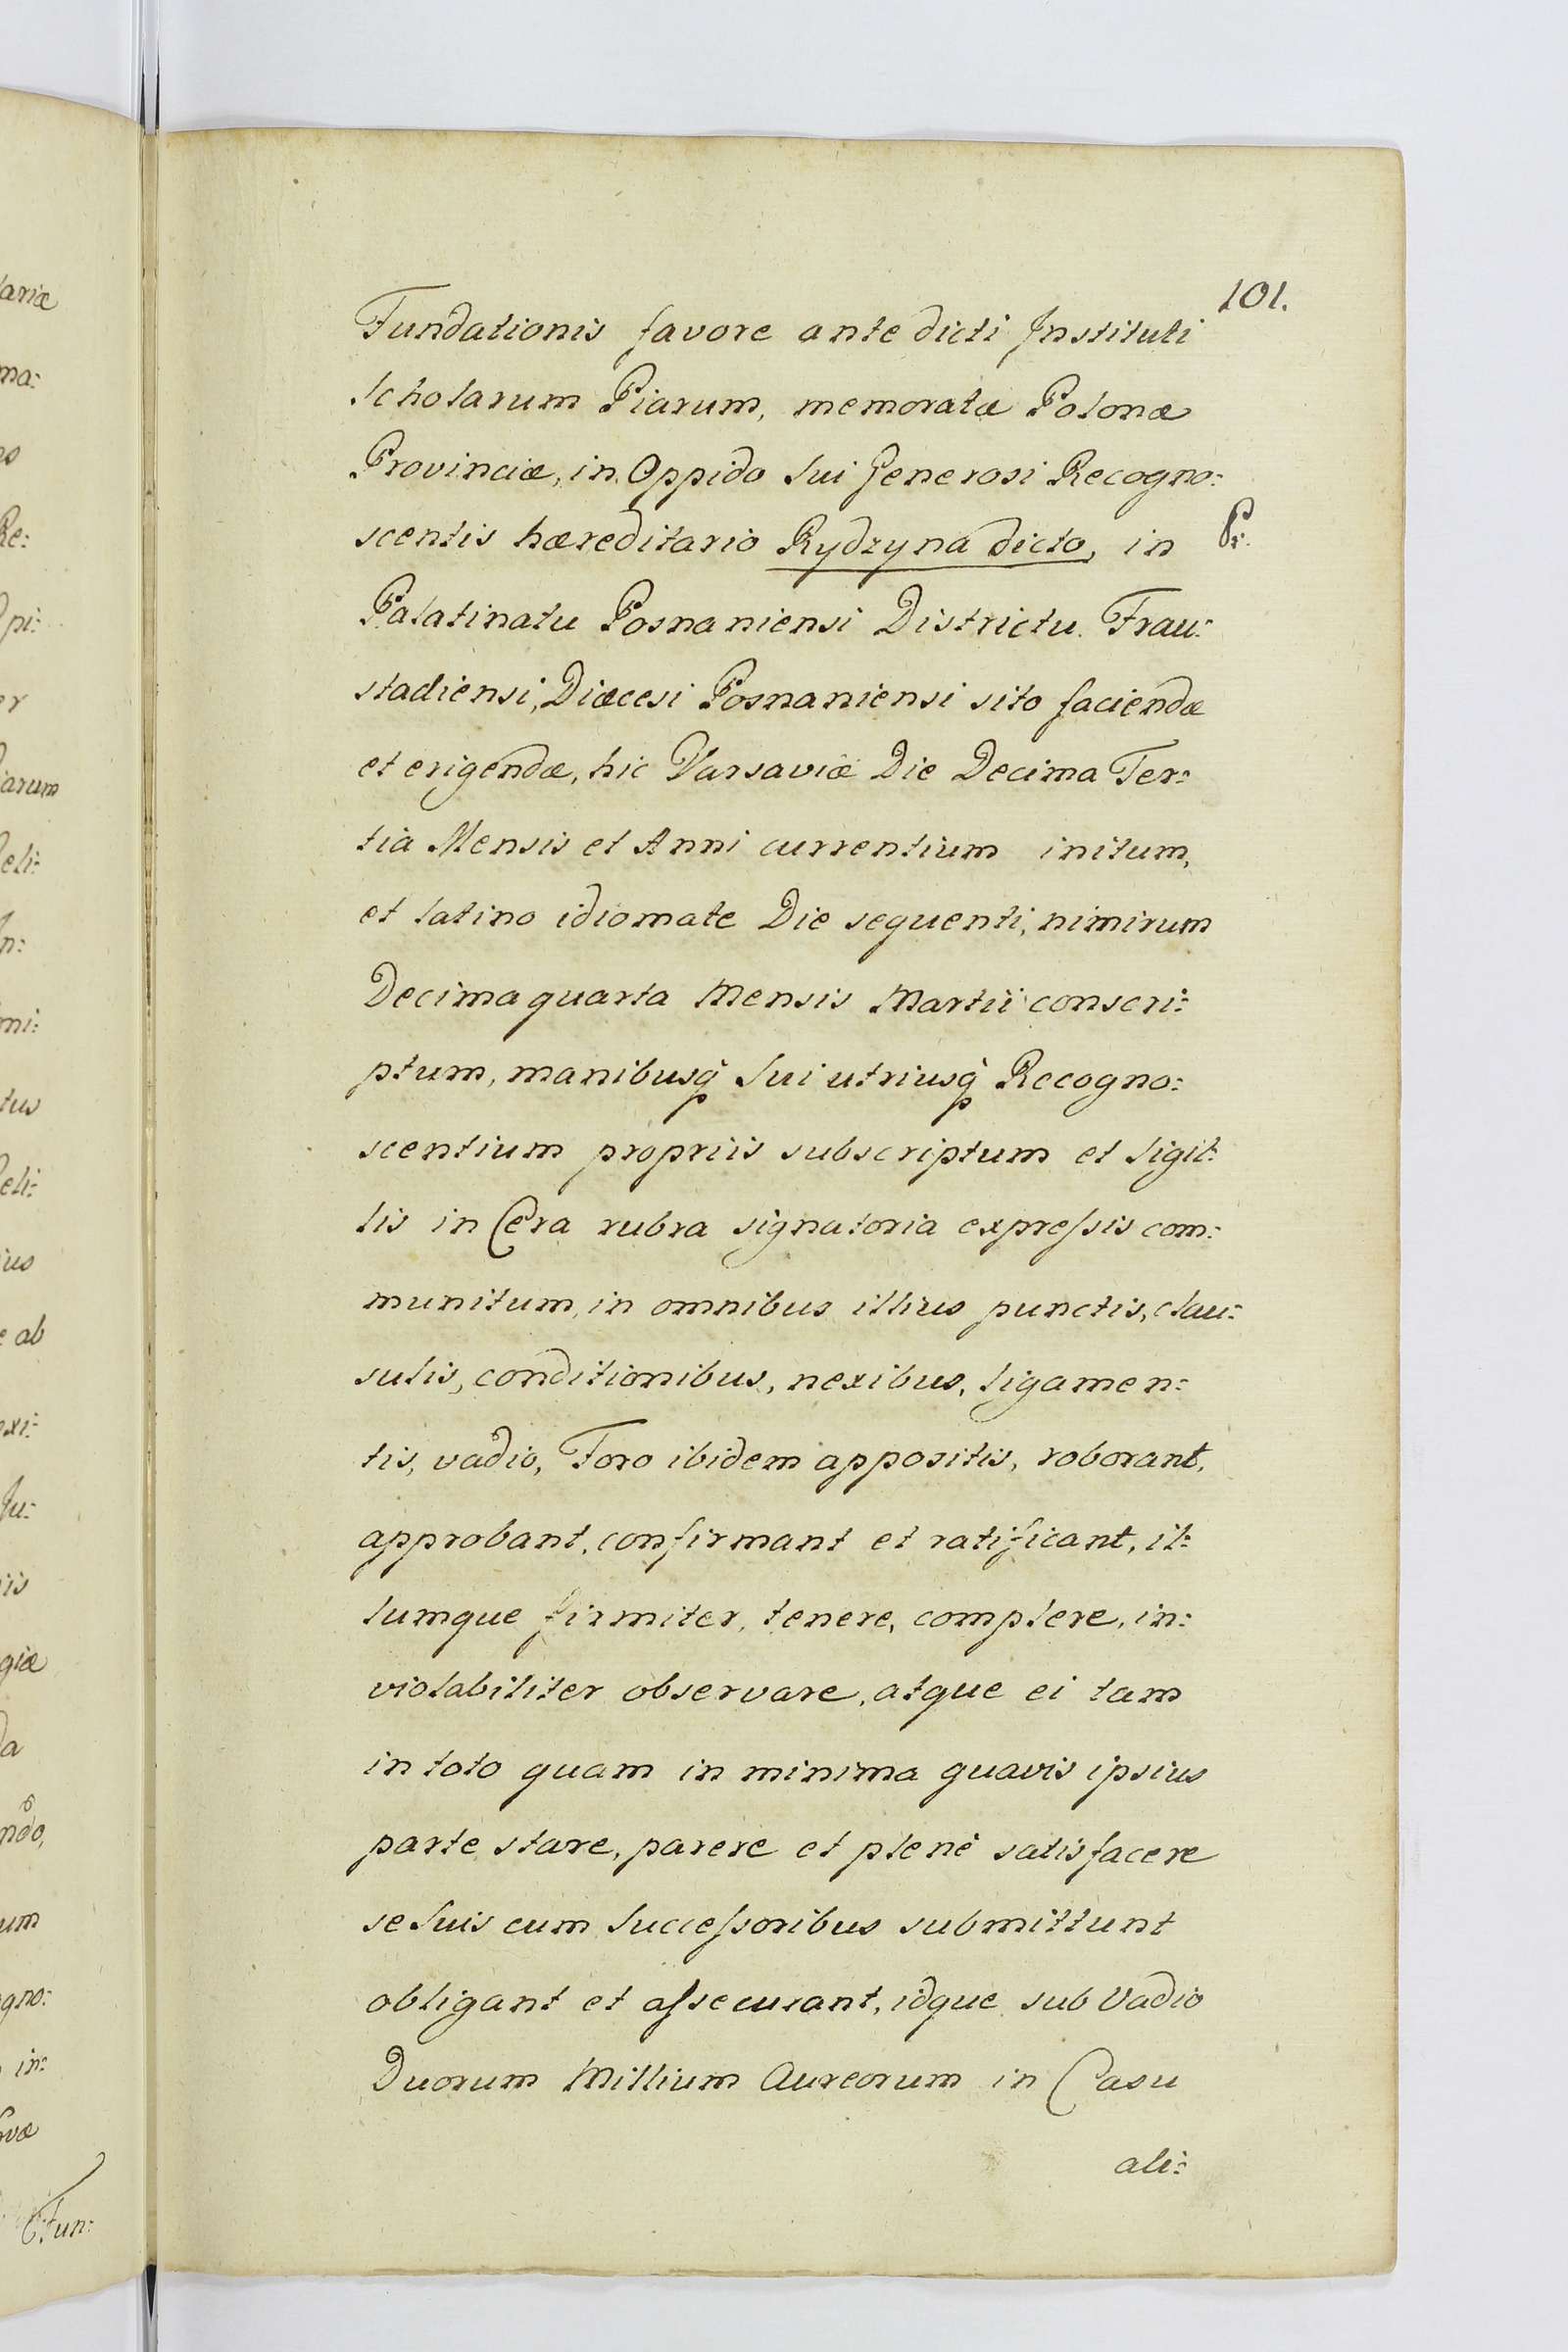 101.
Fundationis favore ante dicti Instituti
Scholarum Piarum, memoratæ Polonæ
Provinciæ, in Oppido Sui Generosi Recogno:
scentis hæreditario Rydzyna dicto, in
Palatinatu Posnaniensi Districtu Frau:
stadiensi, Diæcesi Posnaniensi sito faciendæ
et erigendæ, hic Varsaviæ Die Decima Ter:
tia Mensis et Anni currentium initum,
et latino idiomate Die sequenti, nimirum
Decima quarta Mensis Martii conscri:
ptum, manibusq̀ Sui utriusq̀ Recogno:
scentium propriis subscriptum et Sigil:
lis in Cera rubra signatoria expreſsis com:
munitum, in omnibus illius punctis, clau:
sulis, conditionibus, nexibus, ligamen:
tis, vadio, Foro ibidem appositis, roborant,
approbant, confirmant et ratificant, il:
lumque firmiter, tenere, complere, in:
violabiliter observare, atque ei tam
in toto quam in minima quavis ipsius
parte stare, parere et plenè satisfacere
se Suis cum Succeſsoribus submittunt
obligant et aſsecurant, idque sub Vadio
Duorum Millium Aureorum in Casu
ali:
ariæ
ma:
Re:
pi:
er
arum
eli:
n:
mi:
tus
eli:
ius
e ab
exi:
Ju:
iis
giæ
da
ndo,
um
gno:
in:
Fun: